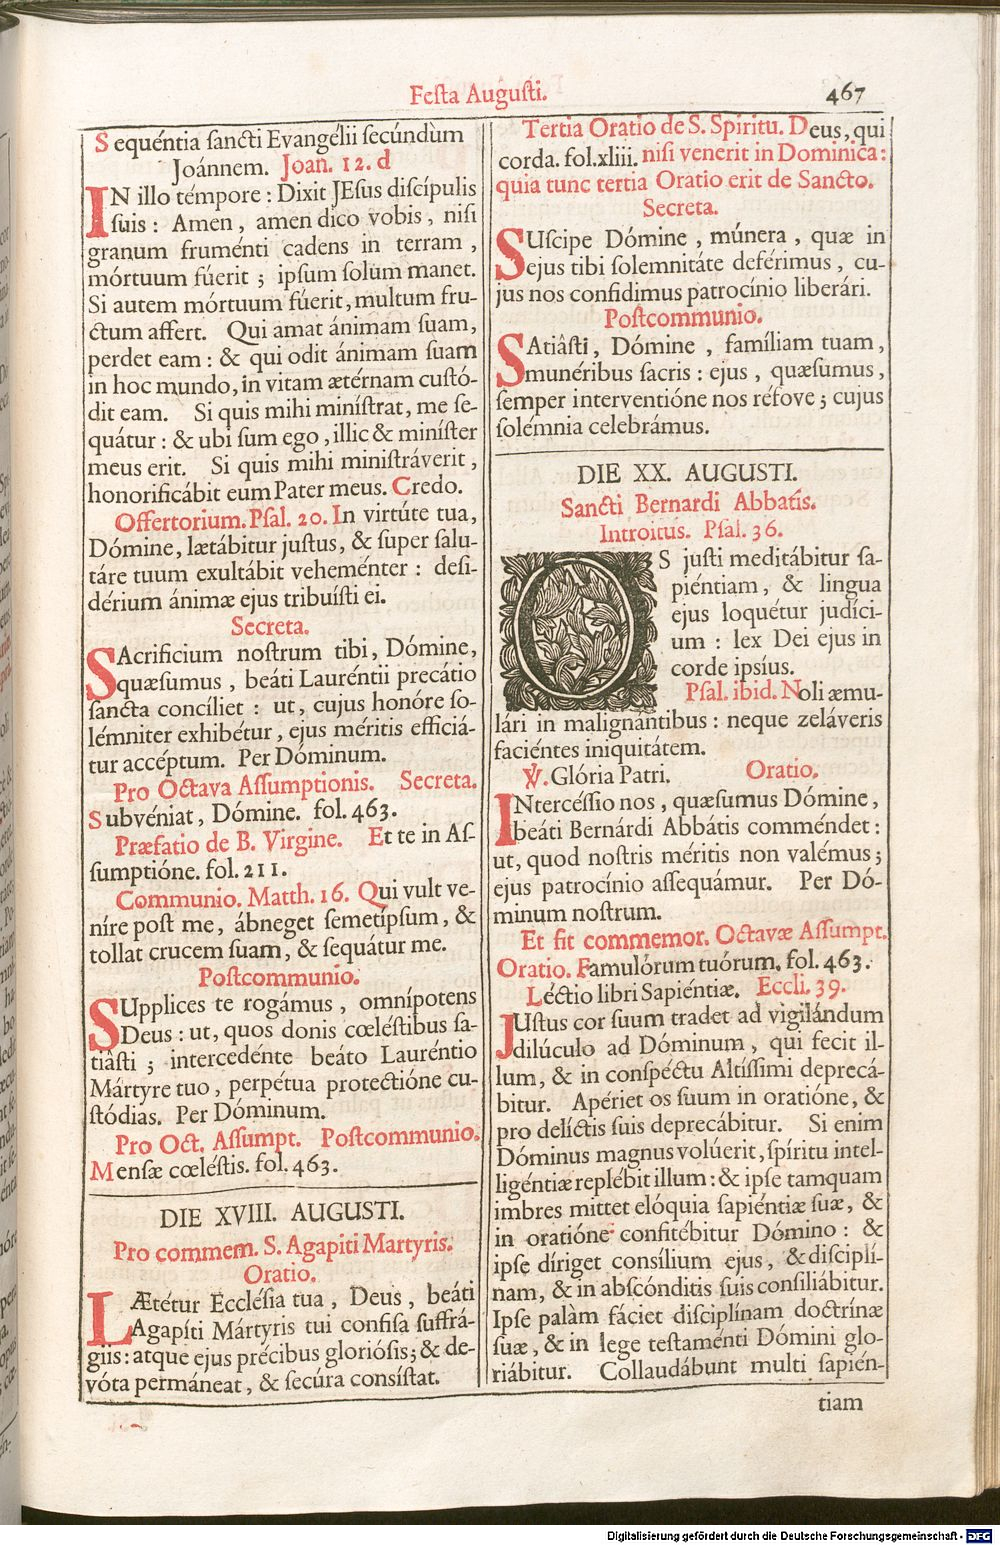 Festa Augusti. 467
Sequéntia sancti Evangélii secúndùm
Joánnem. Joan. 12. d
IN illo témpore : Dixit JEsus discípulis
suis : Amen, amen dico vobis, nisi
granum fruménti cadens in terram,
mórtuum fúerit ; ipsum solùm manet.
Si autem mórtuum fúerit, multum fru-
ctum affert. Qui amat ánimam suam,
perdet eam : & qui odit ánimam suam
in hoc mundo, in vitam ætérnam custó-
dit eam. Si quis mihi minístrat, me se-
quátur : & ubi sum ego, illic & miníster
meus erit. Si quis mihi ministráverit,
honorificábit eum Pater meus. Credo.
Offertorium. Psal. 20. In virtúte tua,
Dómine, lætábitur justus, & super salu-
táre tuum exultábit veheménter : desi-
dérium ánimæ ejus tribuísti ei.
Secreta.
SAcrificium nostrum tibi, Dómine,
quæsumus, beáti Lauréntii precátio
sancta concíliet : ut, cujus honóre so-
lémniter exhibétur, ejus méritis efficiá-
tur accéptum. Per Dóminum.
Pro Octava Assumptionis. Secreta.
Subvéniat, Dómine. fol. 463.
Præfatio de B. Virgine. Et te in As-
sumptióne. fol. 211.
Communio. Matth. 16. Qui vult ve-
níre post me, ábneget semetípsum, &
tollat crucem suam, & sequátur me.
Postcommunio.
SUpplices te rogámus, omnípotens
Deus : ut, quos donis cœléstibus sa-
tiâsti ; intercedénte beáto Lauréntio
Mártyre tuo, perpétua protectióne cu-
stódias. Per Dóminum.
Pro Oct. Assumpt. Postcommunio.
Mensæ cœléstis. fol. 463.
DIE XVIII. AUGUSTI.
Pro commem. S. Agapiti Martyris.
Oratio.
LÆtétur Ecclésia tua, Deus, beáti
Agapíti Mártyris tui confisa suffrá-
giis : atque ejus précibus gloriósis ; & de-
vóta permáneat, & secúra consístat.
Tertia Oratio de S. Spiritu. Deus, qui
corda. fol. xliii. nisi venerit in Dominica :
quia tunc tertia Oratio erit de Sancto.
Secreta.
SUscipe Dómine, múnera, quæ in
ejus tibi solemnitáte deférimus, cu-
jus nos confidimus patrocínio liberári.
Postcommunio.
SAtiâsti, Dómine, famíliam tuam,
munéribus sacris : ejus, quæsumus,
semper interventióne nos réfove ; cujus
solémnia celebrámus.
DIE XX. AUGUSTI.
Sancti Bernardi Abbatis.
Introitus. Psal. 36.
OS justi meditábitur sa-
piéntiam, & lingua
ejus loquétur judíci-
um : lex Dei ejus in
corde ipsíus.
Psal. ibid. Noli æmu-
lári in malignántibus : neque zeláveris
faciéntes iniquitátem.
℣. Glória Patri. Oratio.
INtercéssio nos, quæsumus Dómine,
beáti Bernárdi Abbátis comméndet :
ut, quod nostris méritis non valémus ;
ejus patrocínio assequámur. Per Dó-
minum nostrum.
Et fit commemor. Octavæ Assumpt.
Oratio. Famulórum tuórum. fol. 463.
Léctio libri Sapiéntiæ. Eccli. 39.
JUstus cor suum tradet ad vigilándum
dilúculo ad Dóminum, qui fecit il-
lum, & in conspéctu Altíssimi deprecá-
bitur. Apériet os suum in oratióne, &
pro delíctis suis deprecábitur. Si enim
Dóminus magnus volúerit, spíritu intel-
ligéntiæ replébit illum : & ipse tamquam
imbres mittet elóquia sapiéntiæ suæ, &
in oratióne confitébitur Dómino : &
ipse díriget consílium ejus, & disciplí-
nam, & in abscónditis suis consiliábitur.
Ipse palàm fáciet disciplínam doctrínæ
suæ, & in lege testaménti Dómini glo-
riábitur. Collaudábunt multi sapién-
tiam
Digitalisierung gefördert durch die Deutsche Forschungsgemeinschaft - DFG